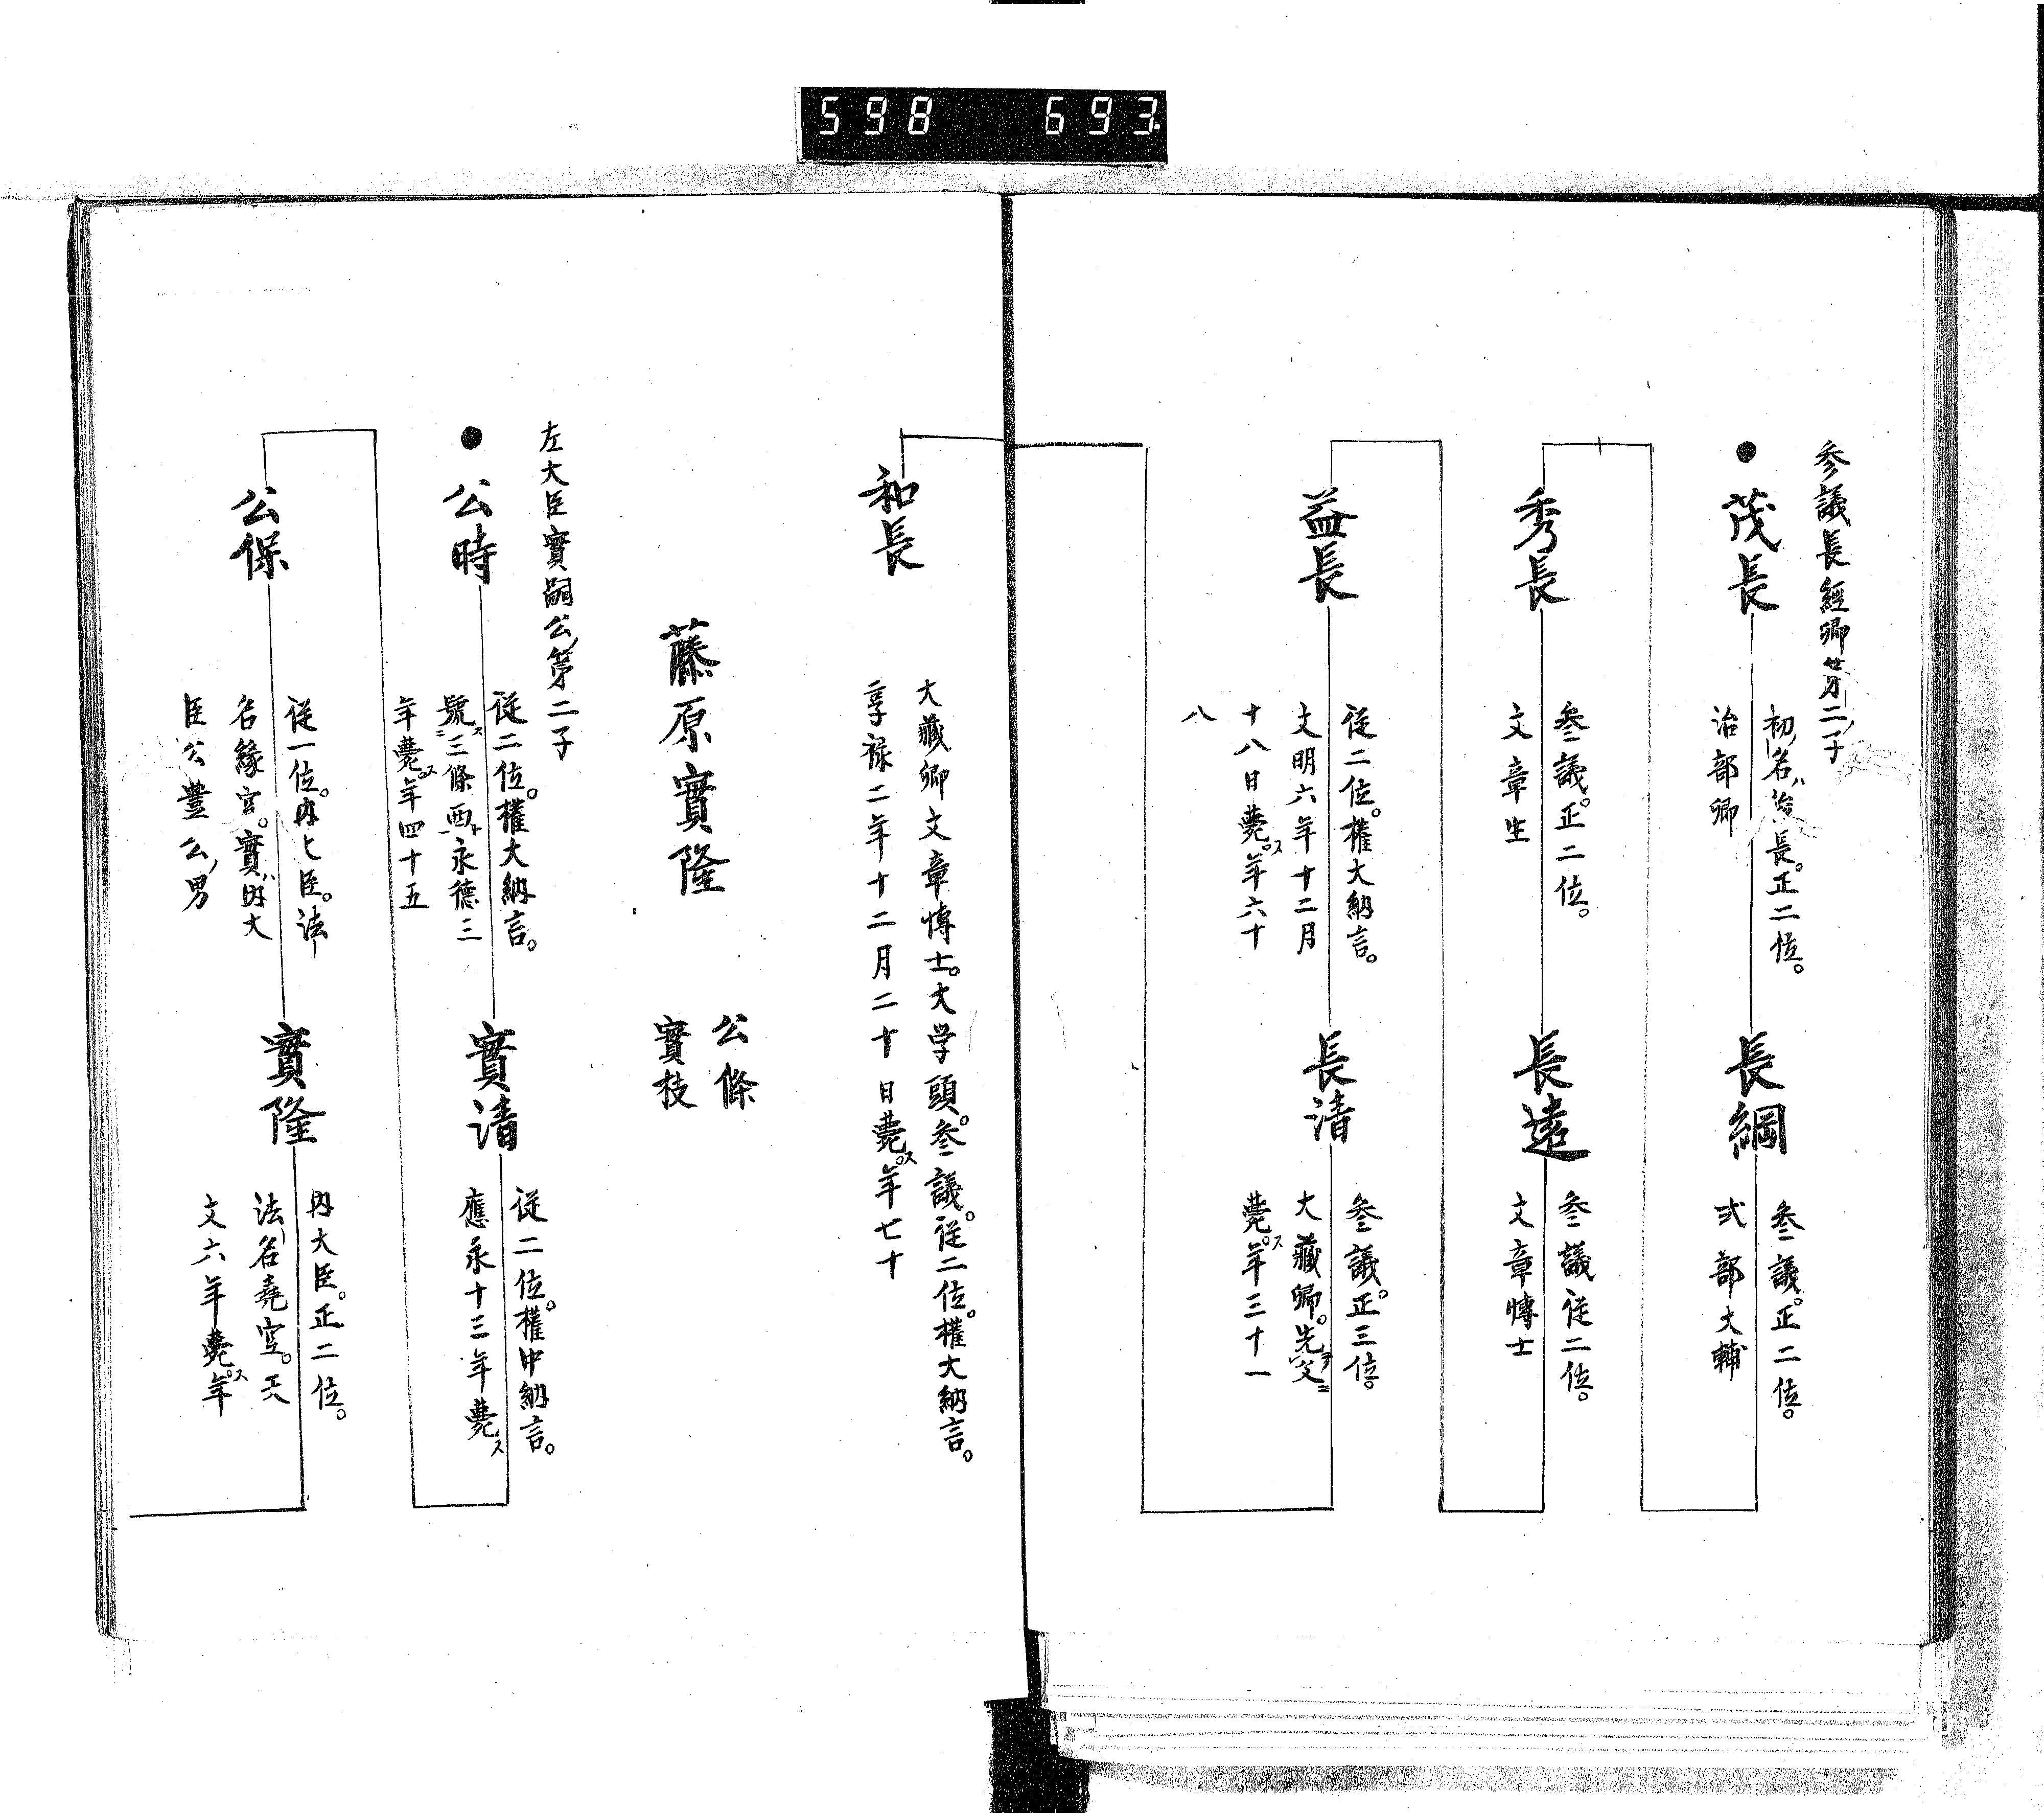 598 693.
参議長經卿第二子
茂長
初名ハ治長。正二位。
治部卿
長綱
参議。正二位。
式部大輔
秀長
参議。正二位。
文章生
長遠
参議従二位。
文章博士
益長
従二位。權大納言。
文明六年十二月
十八日薨ス。年六十
八
長清
参議。正三位。
大藏卿。先父ニ
薨ス。年三十一
和長
大藏卿文章博士。大学頭。参議。従二位。權大納言。
享禄二年十二月二十日薨ス。年七十
藤原實隆
公條
實枝
左大臣實嗣公ノ第二子
公時
従二位。權大納言。
號ス三條西ト永德三
年薨ス。年四十五
實清
従二位。權中納言。
應永十三年薨ス
公保
従一位。内大臣。法
名縁空。實ハ内大
臣公豊公ノ男
實隆
内大臣。正二位。
法名堯空。天
文六年薨ス。年